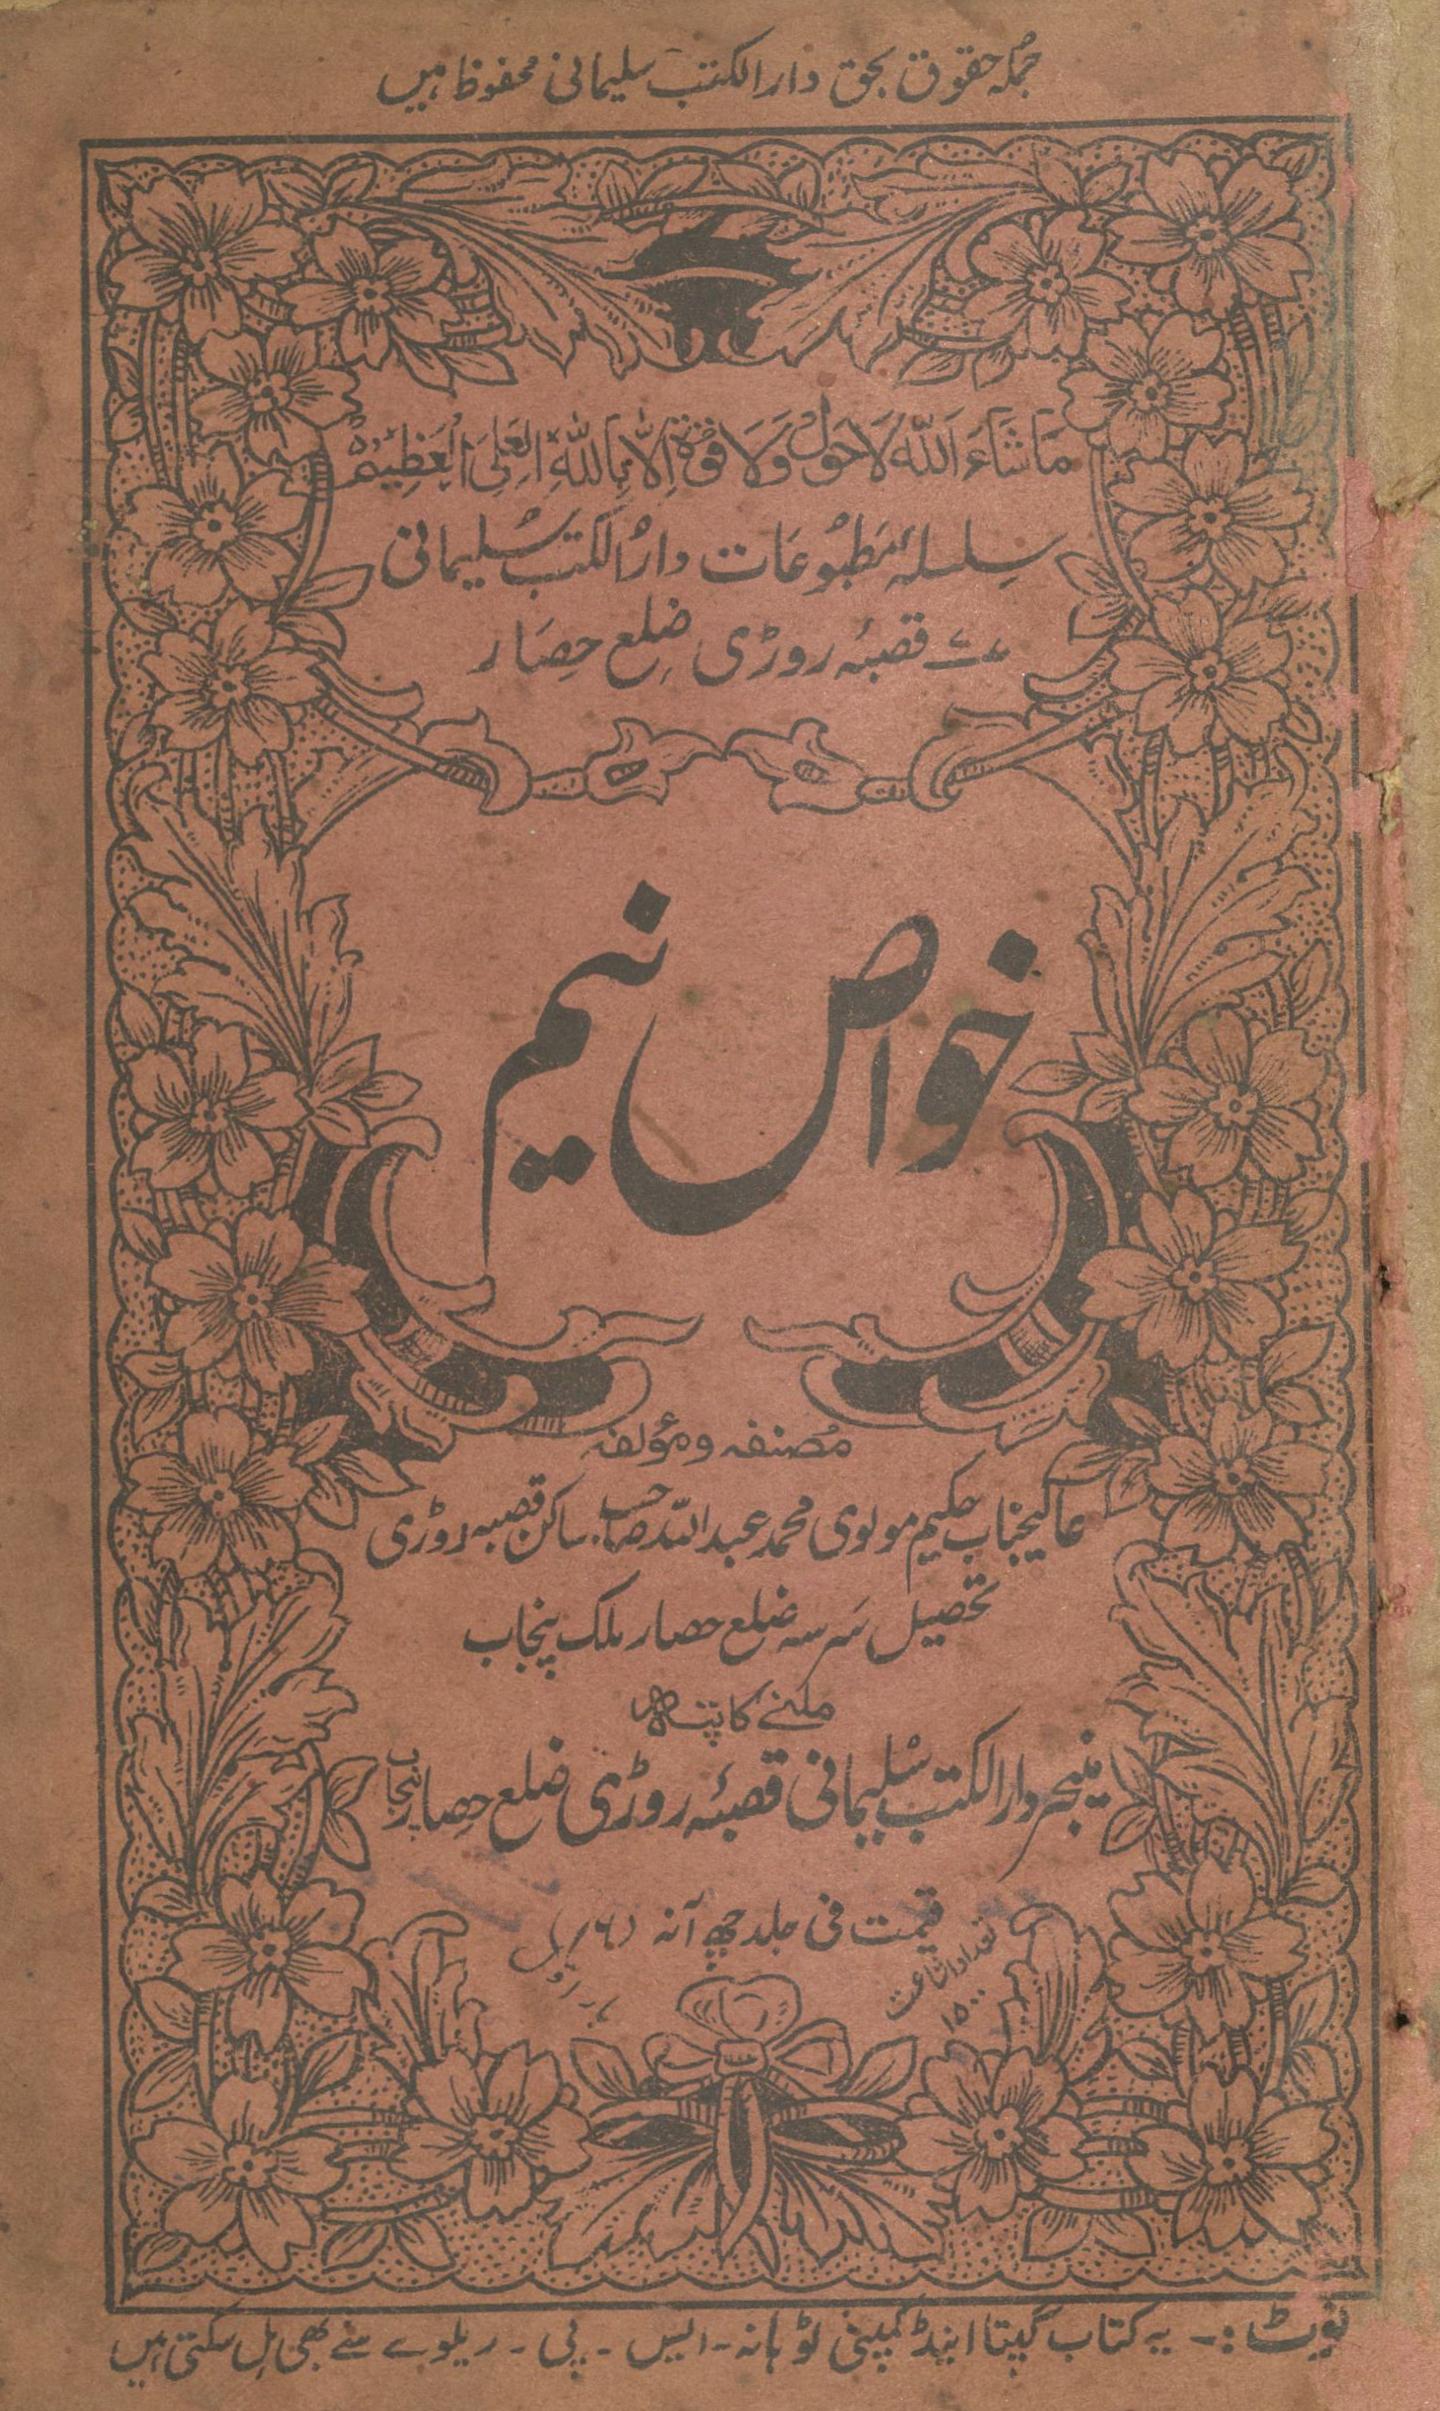 جملہ حقوق بحق دارالکتب سلیمانی محفوظ ہیں
مَاشَاءَ اللّٰہ لَاحَوْلَ وَلَا قُوَّۃَ اِلَّا بِاللّٰہِ الْعَلِیِّ الْعَظِیْمِ
سِلسلہ مَطبُوعَات دارُالکتب سُلیمانی
قصبہ روڑی ضلع حِصَار
خواص نیم
مُصنفہ و مؤلفہ
عالیجناب حکیم مولوی محمد عبداللہ صاحب ساکن قصبہ روڑی
تحصیل سَرسہ ضلع حصار ملک پنجاب
ملنے کا پتہ
مینجر دارالکتب سُلیمانی قصبۂ روڑی ضلع حِصار پنجاب
قیمت فی جلد چھ آنہ (۶/)
تعداد اشاعت ۱۵۰۰
بار اول
نوٹ :۔ یہ کتاب گپتا اینڈ کمپنی ٹوہانہ ۔ ایس ۔ پی ۔ ریلوے سے بھی مل سکتی ہیں